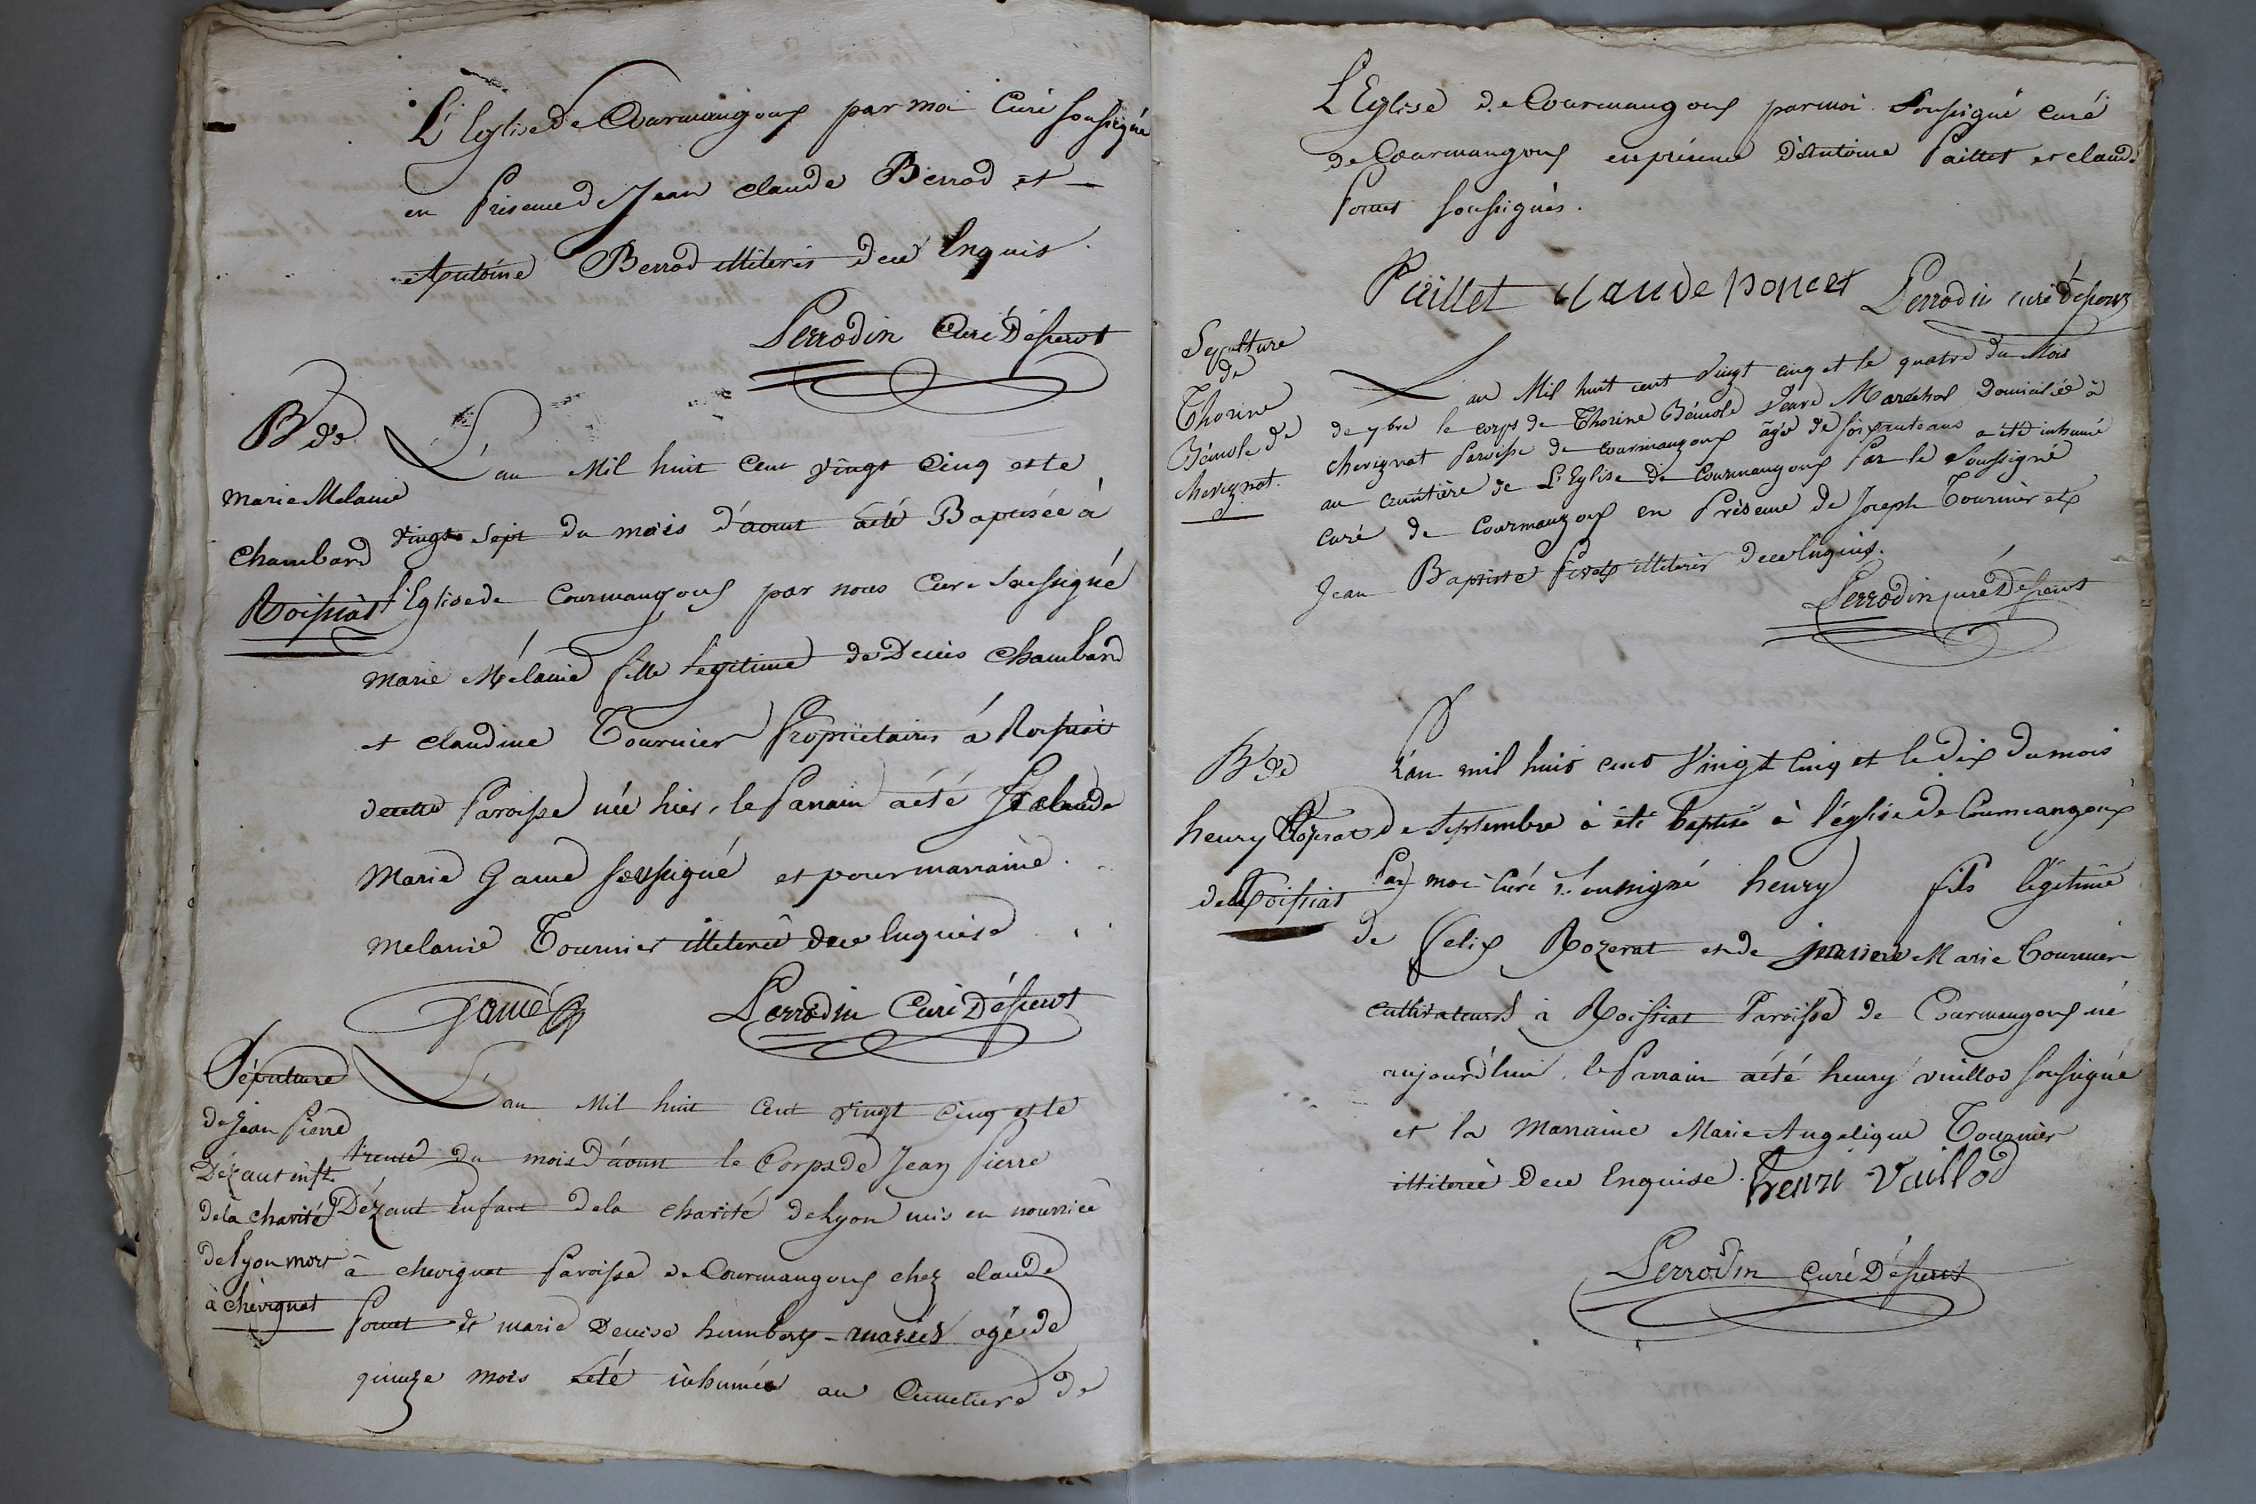 L'Eglise de Courmangoux par moi Curé soussigné
en Présence de Jean Claude Berrod et
Antoine Berrod illiterés de ce Enquis.
Perrodin Curé Dessert
B de
Marie Melanie
Chambard
Roissiat
L'an Mil huit Cent vingt Cinq et le
vingt Sept du mois d'aout a été Baptisée à
l'Eglise de Courmangoux par nous Curé Soussigné
Marie Mélanie fille légitime de Denis Chambard
et Claudine Tournier Propriétaires à Roissiat
de cette Paroisse née hier, le Parrain a été Jn claude
Marie Game soussigné et pour marraine
Melanie Tournier illiterée de ce Enquise
Game Perrodin Curé Dessert
Sépulture
de Jean Pierre
Dézaut
de la Charité
de Lyon mort
à Chevignat
L'an Mil huit Cent vingt Cinq et le
trente du mois D'aout le Corps de Jean Pierre
Dézaut Enfant de la Charité de Lyon mis en nourrice
à Chevignat Paroisse de Courmangoux chez Claude
Poncet et Marie Denise humbert mariés agé de
quinze mois a été inhumé au Cimetiere de
L'Eglise de Courmangoux par moi Soussigné curé
de Courmangoux en présence d'Antoine Paillet et claude
Poncet soussignés.
Paillet claude poncet Perrodin curé Dessert
Sepulture
de
Thorine
Bémole de
chevignat.
L'an Mil huit cent vingt cinq et le quatre du Mois
de 7bre le corps de Thorine Bémole veuve Maréchal Domiciliée à
chevignat Paroisse de Courmangoux âgée de soixante ans a été inhumé
au cimetière de L'Eglise de Courmangoux Par le Soussigné
curé de Courmangoux en Présence de Joseph Tournier et
Jean Baptiste illiterés de ce Enquis.
Perrodin curé Dessert
B de
henry Rozerat
de Roissiat
L'an mil huit cent Vingt Cinq et le dix du mois
de Septembre à été baptisé à l'église de Courmangoux
Par moi Curé Soussigné henry fils légitime
de Felix Rozerat et de Marie Tournier
cultivateurs à Roissiat Paroisse de Courmangoux né
aujourd'hui, le Parrain a été henry vuillod soussigné
et la Marraine Marie Angelique Tournier
illiterée De ce Enquise. henri Vuillod
Perrodin Curé Dessert